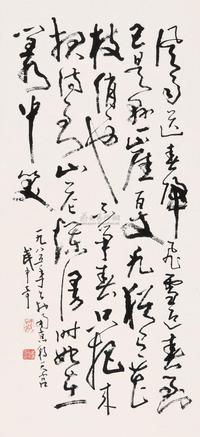 風雨送春歸飛雪迎春到
已是懸崖百丈冰猶有花
枝俏俏也不爭春只把春來
報待到山花爛漫時她在
叢中笑
一九八五年